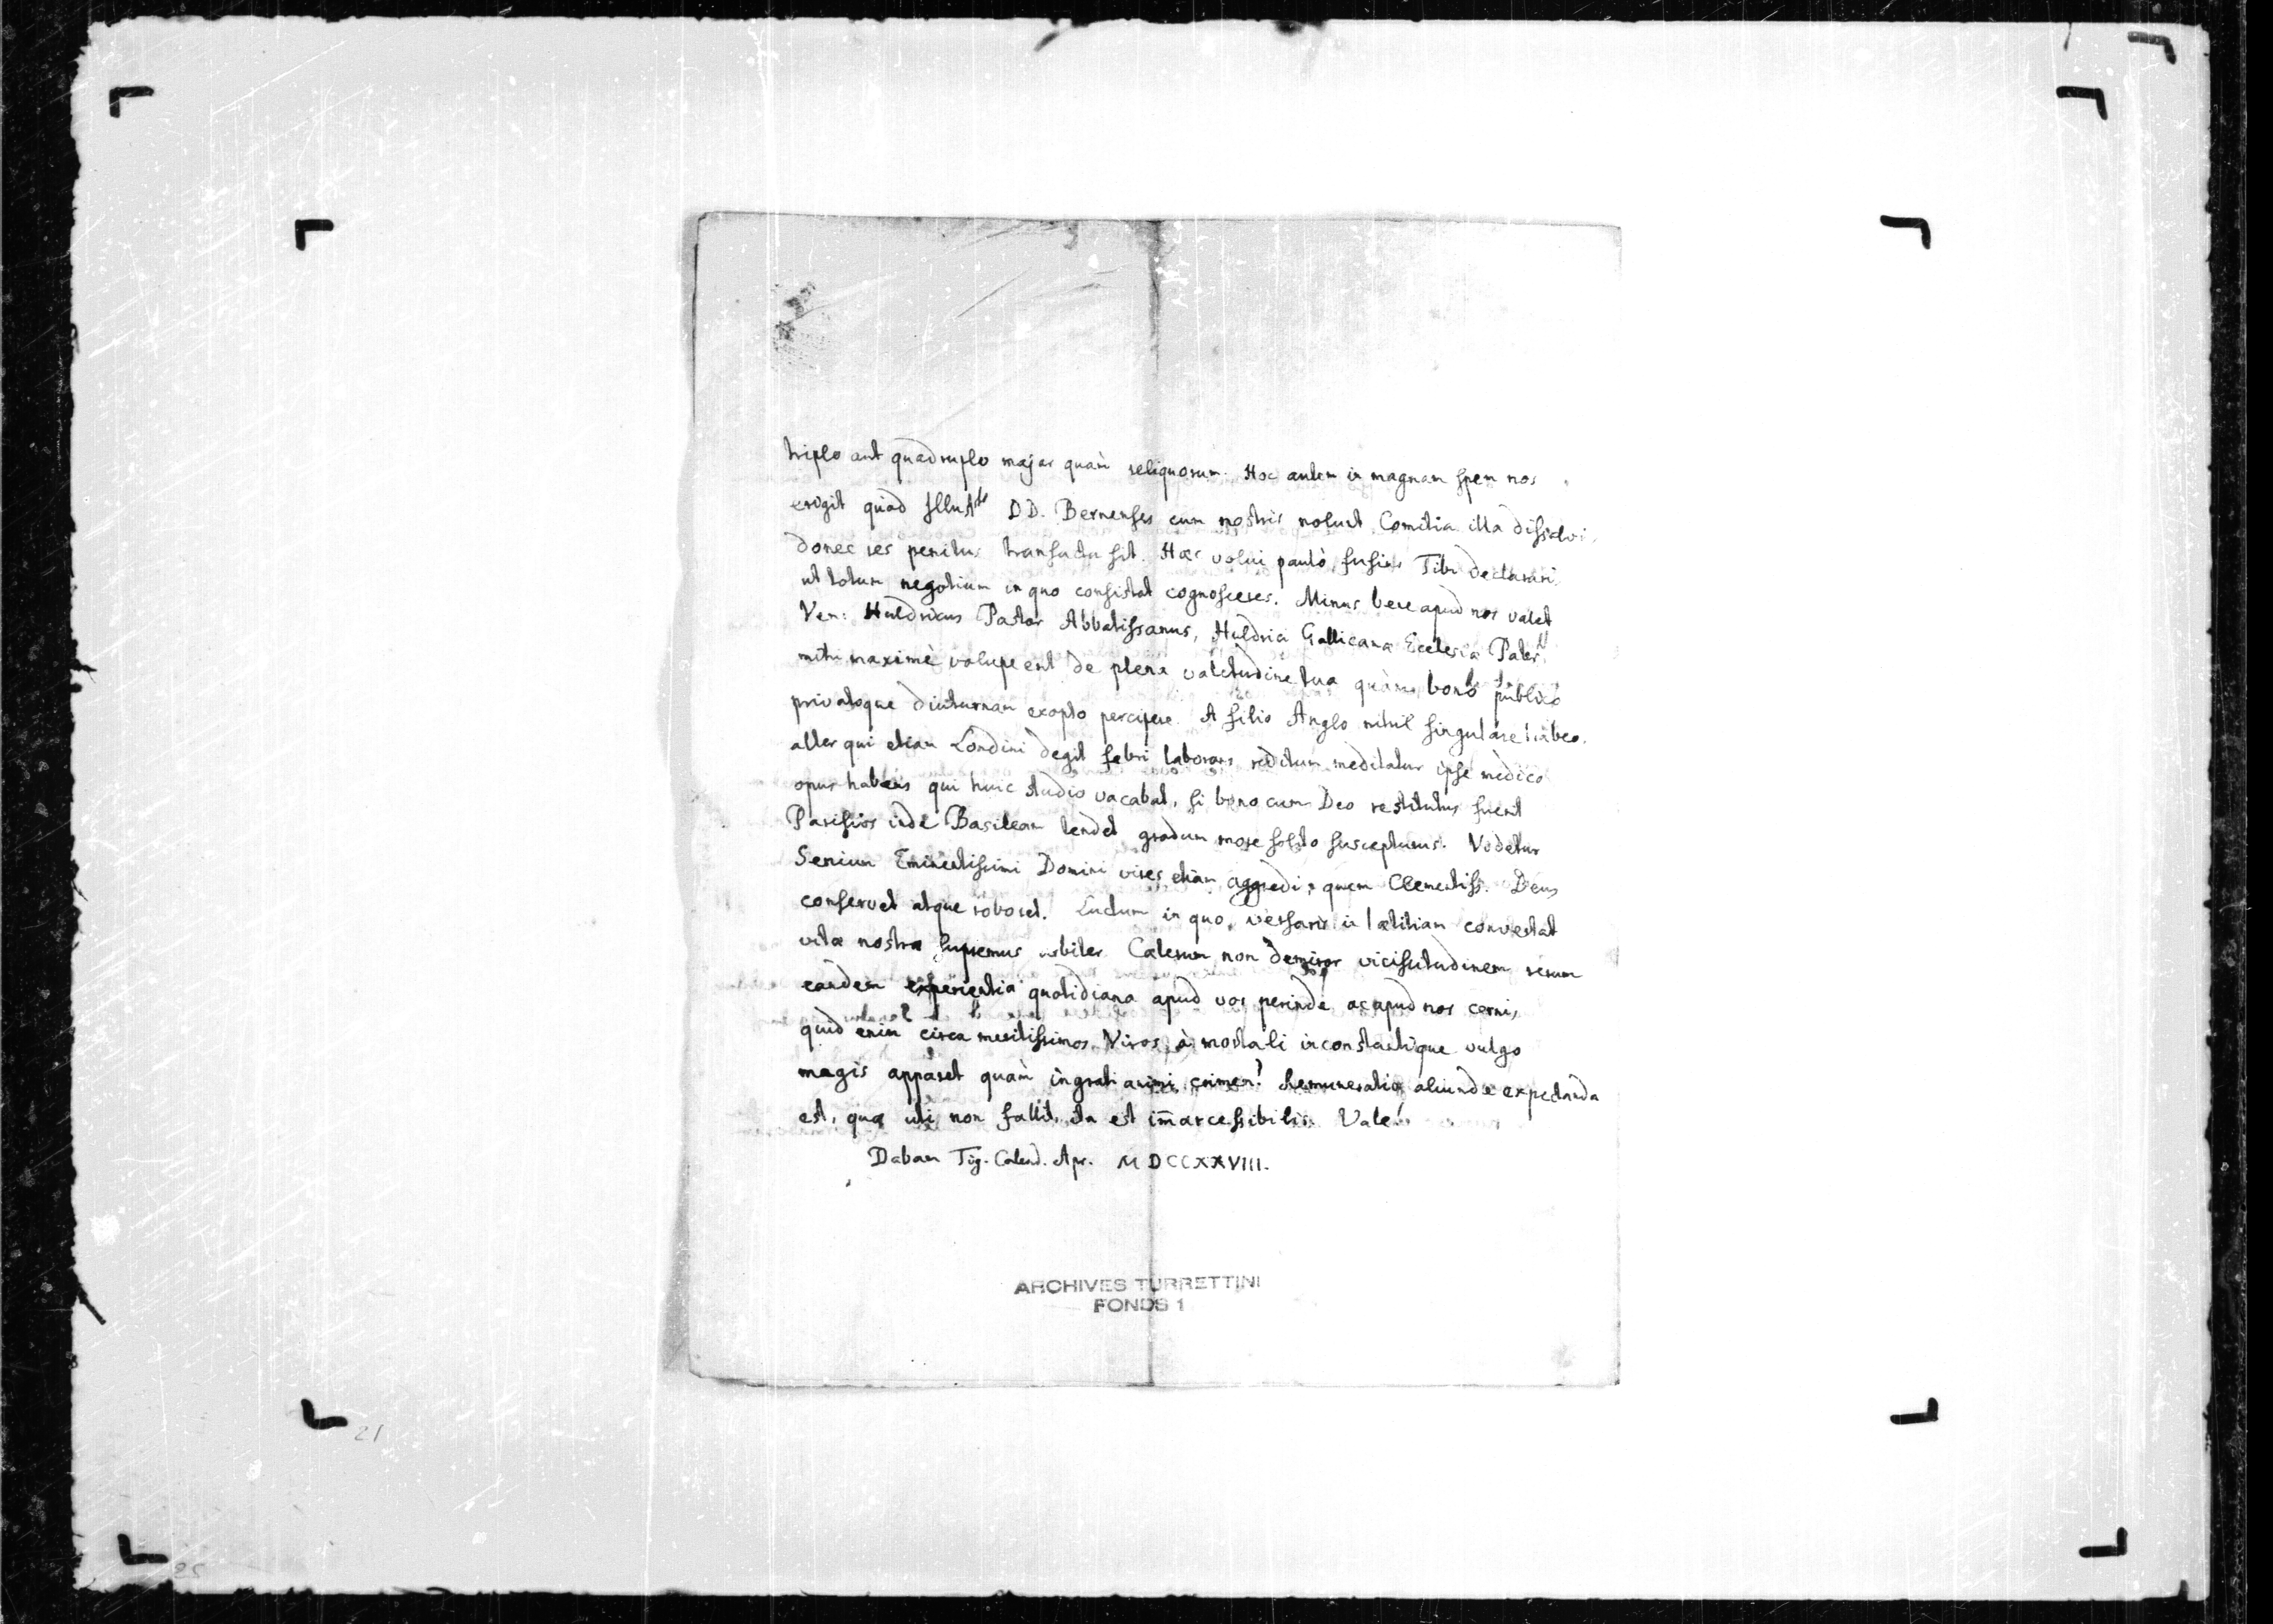 triplo aut quadruplo major quàm reliquorum. Hoc autem in magnam spem nos
erigit quòd Illustr DD. Bernenses cum nostris nolunt Comitia illa dissolvi,
donec res penitus transacta sit. Hæc volui paulò fusius Tibi declarari
ut totum negotium in quo consistat cognosceres. Minus bene apud nos valet
Ven: Huldricus Pastor Abbatissanus, Huldrici Gallicanæ Ecclesiæ Pater,
mihi maximè volupe erit de plena valetudine tua quàm bono publico
privatoque diuturnam exopto percipere. A filio Anglo nihil singulare habeo.
alter qui etiam Londini degit febri laborans reditum meditatur ipse medico
opus habens qui huic studio vacabat, si bono cum Deo restitutus fuerit
Parisios inde Basileam tendet gradum more solito suscepturus. Videtur
Senium Eminentissimi Domini vires etiam aggredi, quem Clementiss. Deus
conservet atque roboret. Luctum in quo versaris in lætitiam convertat
vitæ nostræ supremus arbiter. Cæterum non demiror vicissitudinem rerum
eandem experientia quotidiana apud vos perinde ac apud nos cerni,
quid enim circa meritissimos Viros à mortali inconstantique vulgo
magis apparet quàm ingrati animi crimen? Remuneratio aliunde expectanda
est, quæ uti non fallit, ita est im̅arcessibilis. Vale!
Dabam Tig. Calend. Apr. MDCCXXVIII.
ARCHIVES TURRETTINI
FONDS 1
21
25